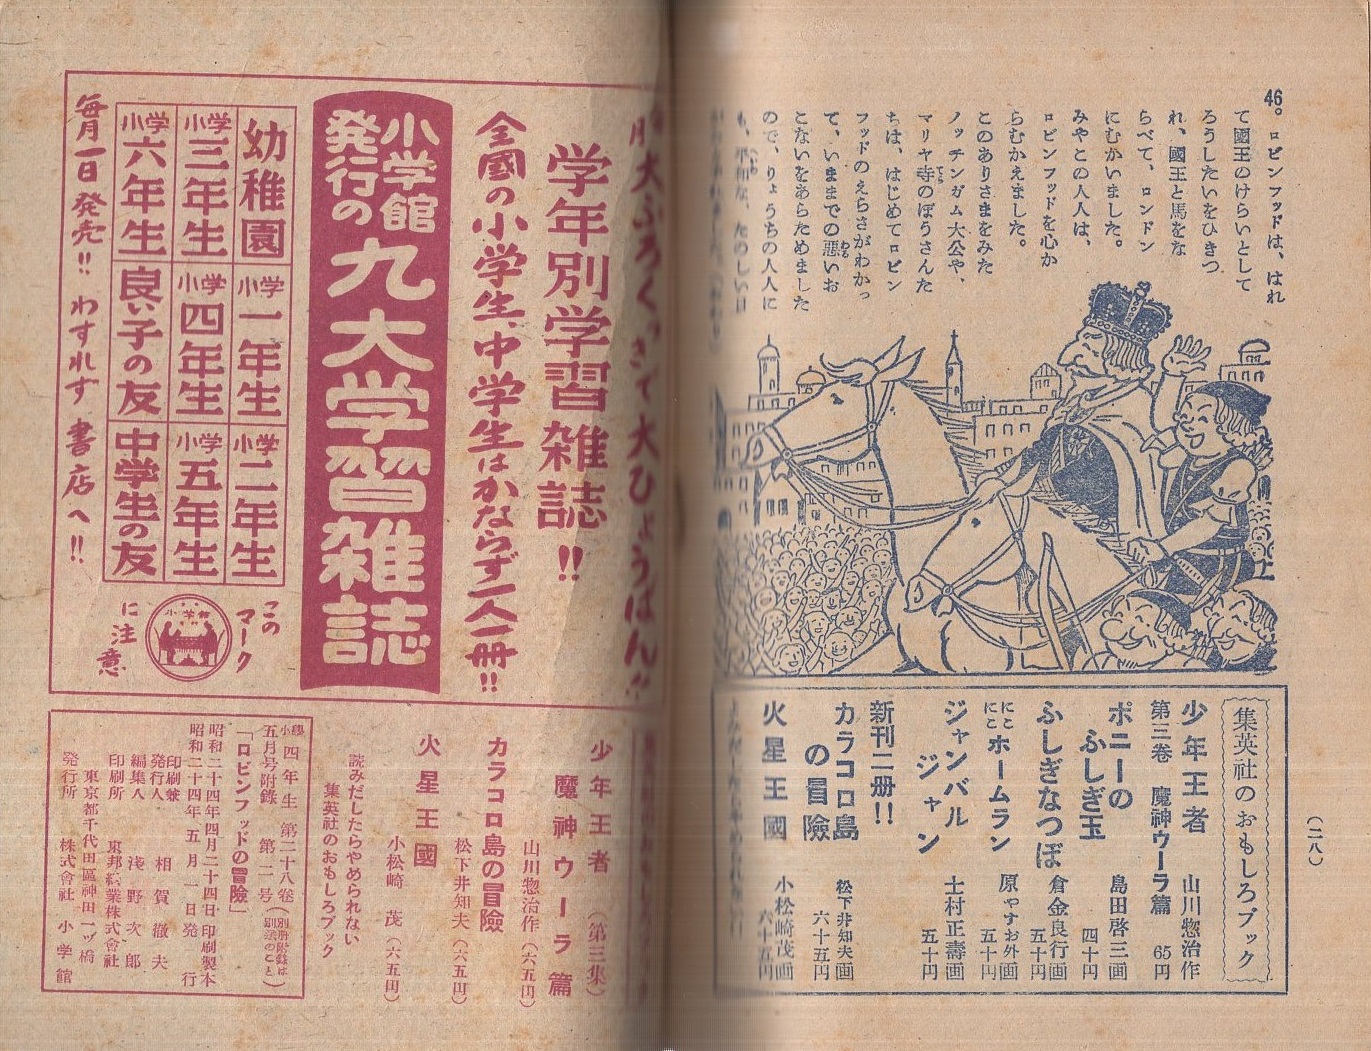 46。ロビンフッドは、はれ
て國王のけらいとして
ろうしたいをひきつ
れ、國王と馬をな
らべて、ロンドン
にむかいました。
みやこの人人は、
ロビンフッドを心か
らむかえました。
このありさまをみた
ノッチンガム大公や、
マリヤ寺のぼうさんた
ちは、はじめてロビン
フッドのえらさがわかっ
て、いままでの悪いお
こないをあらためました
ので、りょうちの人人に
も、平和な、たのしい日
(二八)
集英社のおもしろブック
少年王者 山川惣治作
第三卷 魔神ウーラ篇 65円
ポニーの
ふしぎ玉 島田啓三画
四十円
ふしぎなつぼ 倉金良行画
五十円
にこにこホームラン 原やすお外画
五十円
ジャンバル
ジャン 士村正壽画
五十円
新刊二册!!
カラコロ島
の冒險 松下井知夫画
六十五円
火星王國 小松崎茂画
六十五円
大ふろくつきで大ひょうばん!!
学年別学習雑誌!!
全國の小学生、中学生はかならず一人一册!!
小学館
発行の
九大学習雑誌
幼稚園 小学一年生 小学二年生
小学三年生 小学四年生 小学五年生
小学六年生 良い子の友 中学生の友
毎月一日発売!! わすれず 書店へ!!
この
マーク
小学館
に注意
少年王者(第三集)
魔神ウーラ篇
山川惣治作(六五円)
カラコロ島の冒險
松下井知夫(六五円)
火星王國
小松崎茂(六五円)
読みだしたらやめられない
集英社のおもしろブック
小學四年生 第二十八卷(別册附録は
五月号附錄 第二号 別録のこと)
「ロビンフッドの冒險」
昭和二十四年四月二十四日印刷製本
昭和二十四年五月一日発行
印刷兼
発行人 相賀徹夫
編集人 淺野次郎
印刷所 東邦紙業株式會社
東京都千代田區神田一ツ橋
発行所 株式會社 小学館